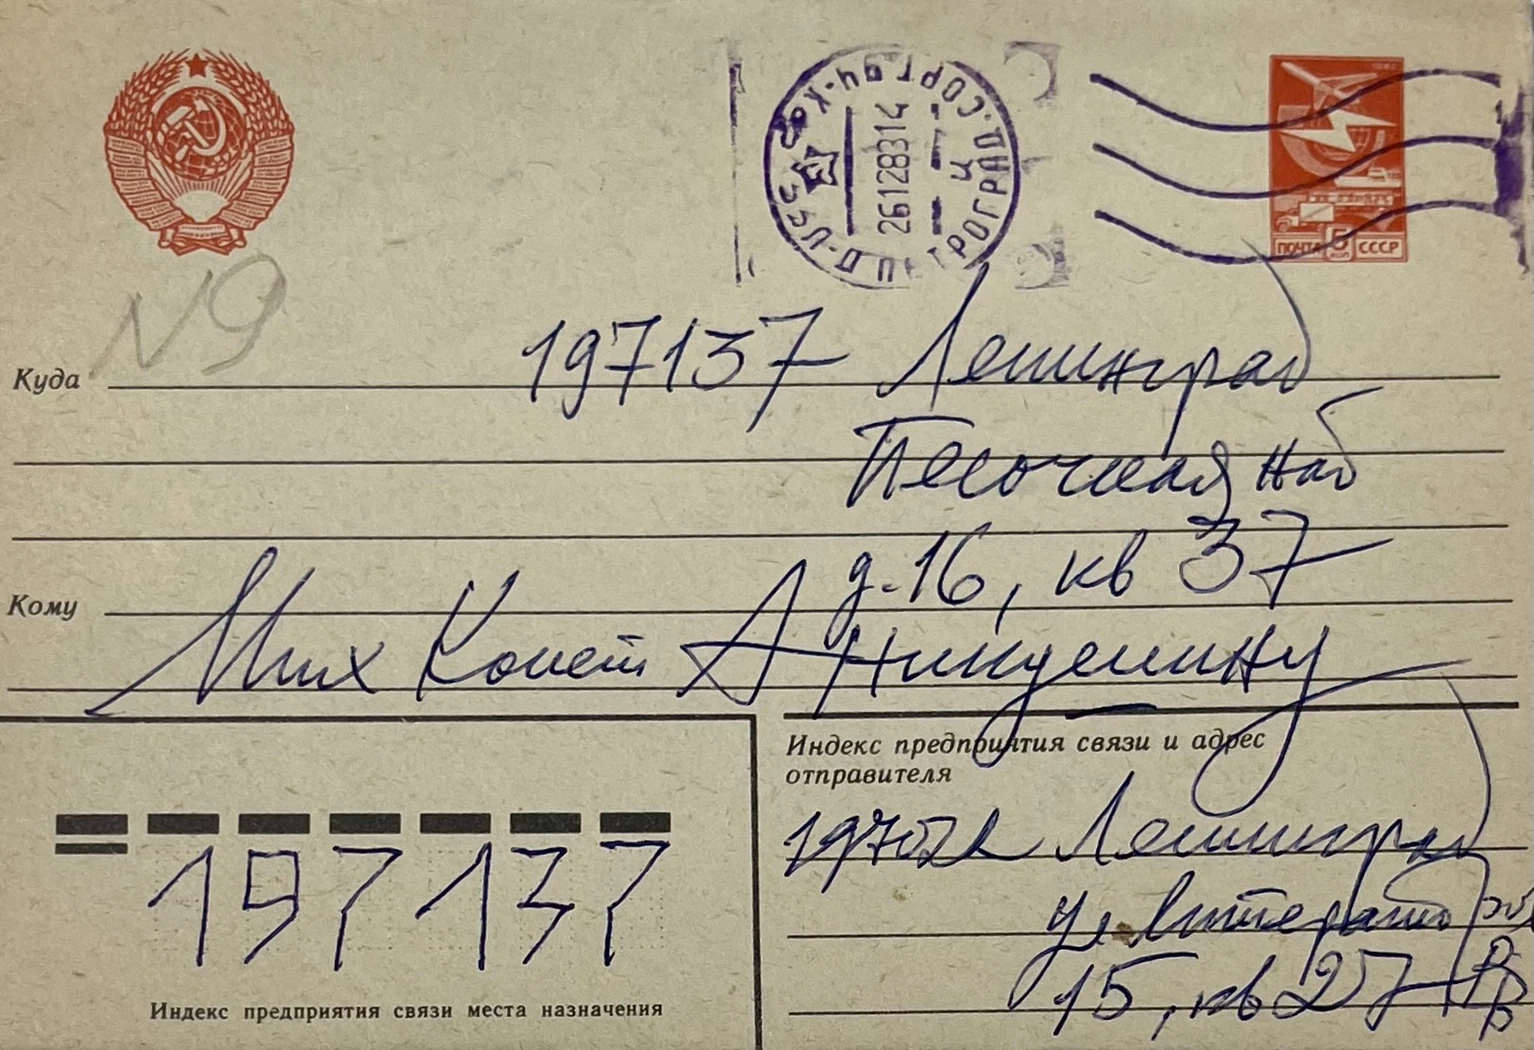 ПОЧТА 5 КОП СССР
26128314
N9
Куда
197137 Ленинград
Песочная наб
д. 16, кв 37
Кому
Мих Конст Аникушину
Индекс предприятия связи и адрес
отправителя
197022 Ленинград
ул. Литераторов
15, кв 27
197137
Индекс предприятия связи места назначения